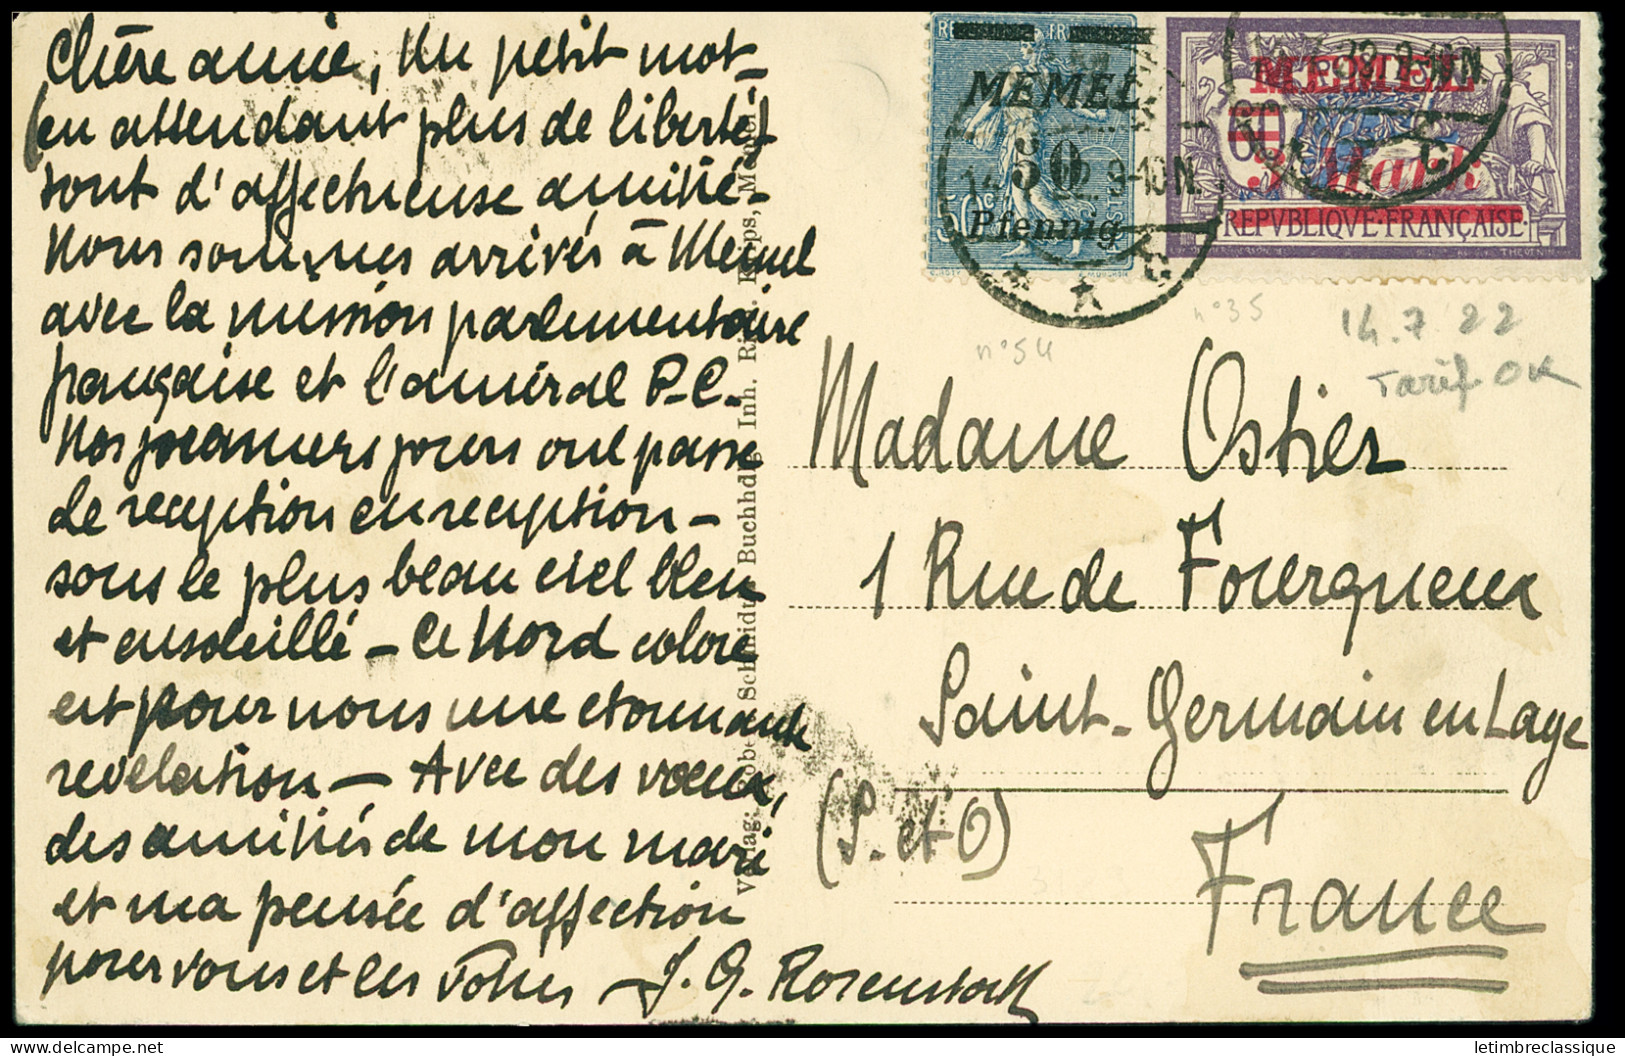 Chère amie, Un petit mot-
(en attendant plus de liberté)
tout d'affectueuse amitié-
Nous sommes arrivés à Memel
avec la mission parlementaire
française et l'amiral P-C-
Nos premiers jours ont passé
de reception en reception -
sous le plus beau ciel bleu
et ensoleillé - Ce Nord coloré
est pour nous une etonnante
revelation - Avec des voeux,
des amitiés de mon mari
et ma pensée d'affection
pour vous et les vôtres - J. G. Rosenstock
MEMEL
50
Pfennig
MEMEL
3 Mark
REPVBLIQVE·FRANÇAISE·
9-10N
n°54
n°35
14.7 22
Tarif OK
Madame Ostier
1 Rue de Fourqueux
Saint-Germain en Laye
(S. et O)
France
delcampe.net
letimbreclassique